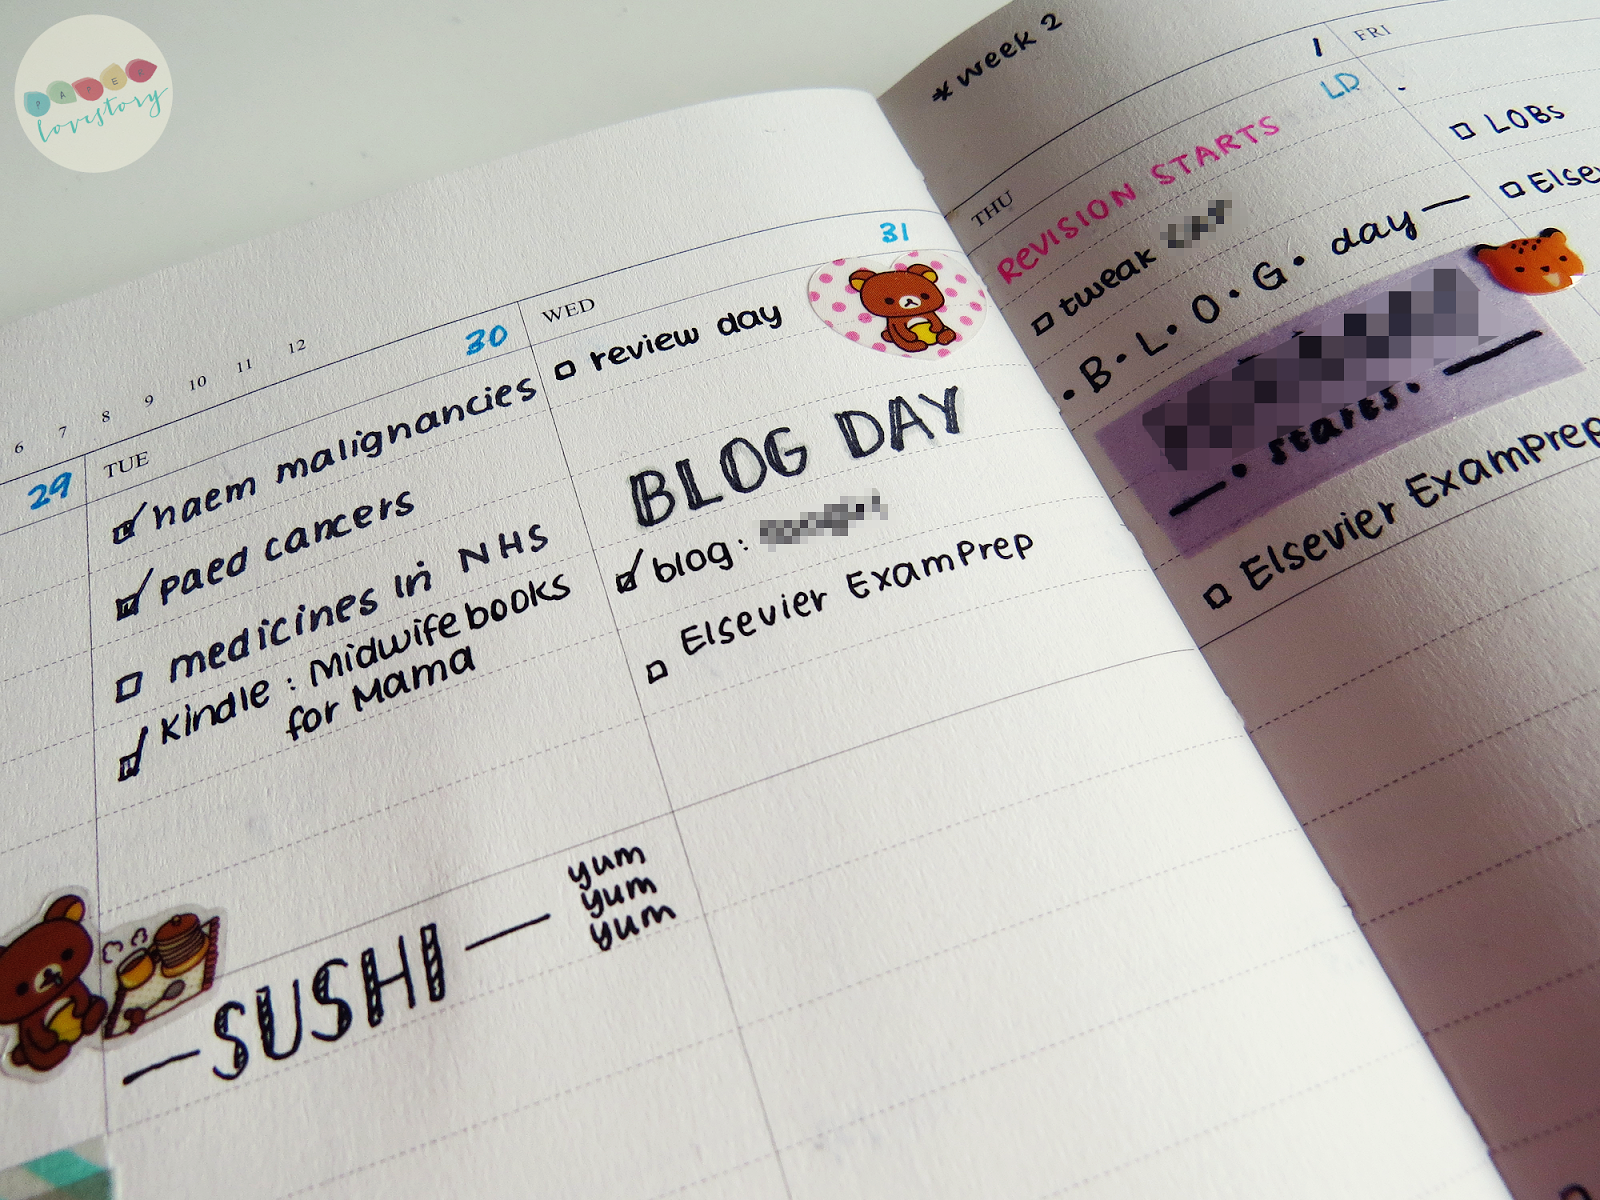 PAPER
lovestory
6 7 8 9 10 11 12
29
TUE 30
haem malignancies
paed cancers
medicines in NHS
Kindle: Midwife books
for Mama
SUSHI
yum
yum
yum
WED 31
review day
BLOG DAY
blog:
Elsevier ExamPrep
* week 2
THU 1
LD
REVISION STARTS
tweak
• B • L • O • G • day
• starts.
Elsevier ExamPrep
FRI
LOBs
Else